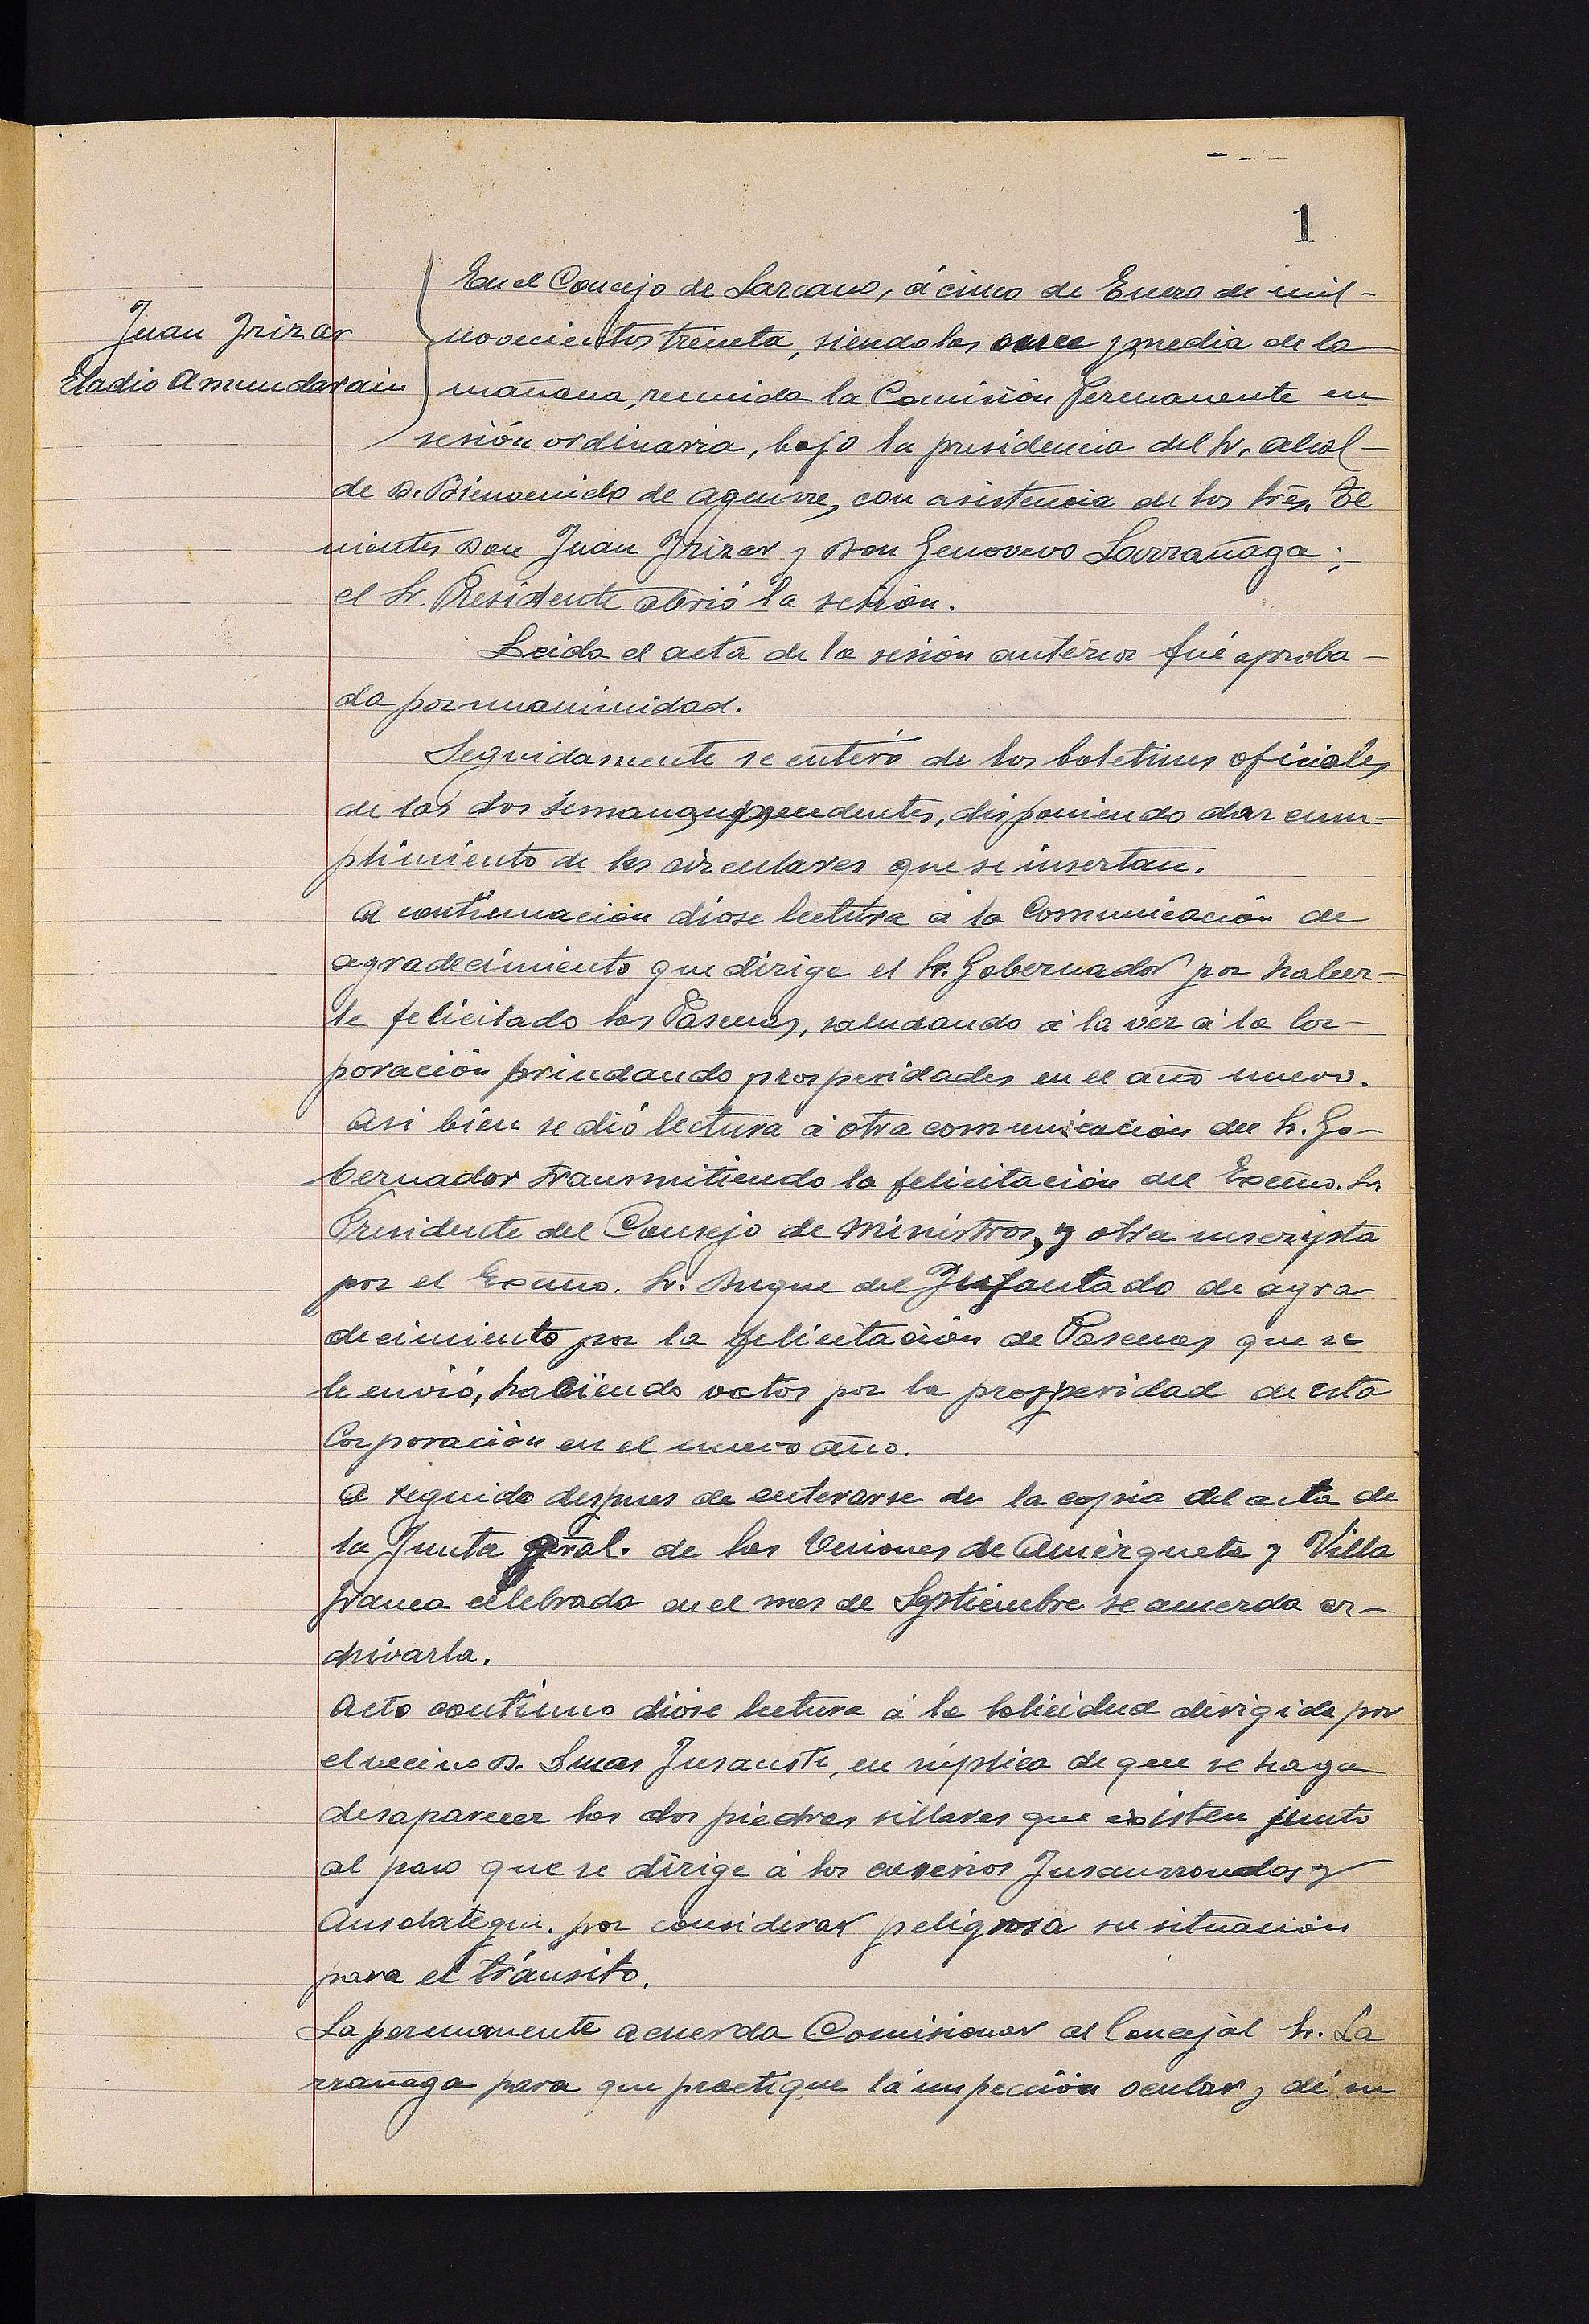 1
Juan Irizar
Eladio Amundarain
En el Concejo de Lazcano, á cinco de Enero de mil-
novecientos treinta, siendo las once y media de la
mañana, reunida la Comisión Permanente en
sesión ordinaria, bajo la presidencia del Sr. Alcal-
de D. Bienvenido de Aguirre, con asistencia de los Sres. Te
nientes Don Juan Irizar y Don Genovevo Larrañaga;
el Sr. Presidente abrió la sesión.
Leida el acta de la sesión anterior fué aproba-
da por unanimidad.
Seguidamente se enteró de los boletines oficiales
de las dos semanas precedentes, disponiendo dar cum-
plimiento de las circulares que se insertan.
A continuación diose lectura á la Comunicación de
agradecimiento que dirige el Sr. Gobernador por haber-
le felicitado las Pascuas, saludando á la vez á la Cor-
poración brindando prosperidades en el año nuevo.
Asi bién se dió lectura á otra comunicación del Sr. Go-
bernador transmitiendo la felicitación del Excmo. Sr.
Presidente del Consejo de Ministros, y otra suscripta
por el Excmo. Sr. Duque del Infantado de agra
decimiento por la felicitación de Pascuas que se
le envió, haciendo votos por la prosperidad de esta
Corporación en el nuevo año.
A seguido despues de enterarse de la copia del acta de
la Junta gñral. de las Uniones de Amézqueta y Villa
franca celebrada en el mes de Septiembre se acuerda ar-
chivarla.
Acto contínuo dióse lectura á la solicidud dirigida por
el vecino D. Lucas Insausti, en súplica de que se haga
desaparecer las dos piedras sillares que existen junto
al paso que se dirige á los caseríos Insaurrondos y
Ausolategui. por considerar peligrosa su situación
para el tránsito.
La permanente acuerda Comisionar al Concejál Sr. La
rrañaga para que practique la inspección ocular y dé su